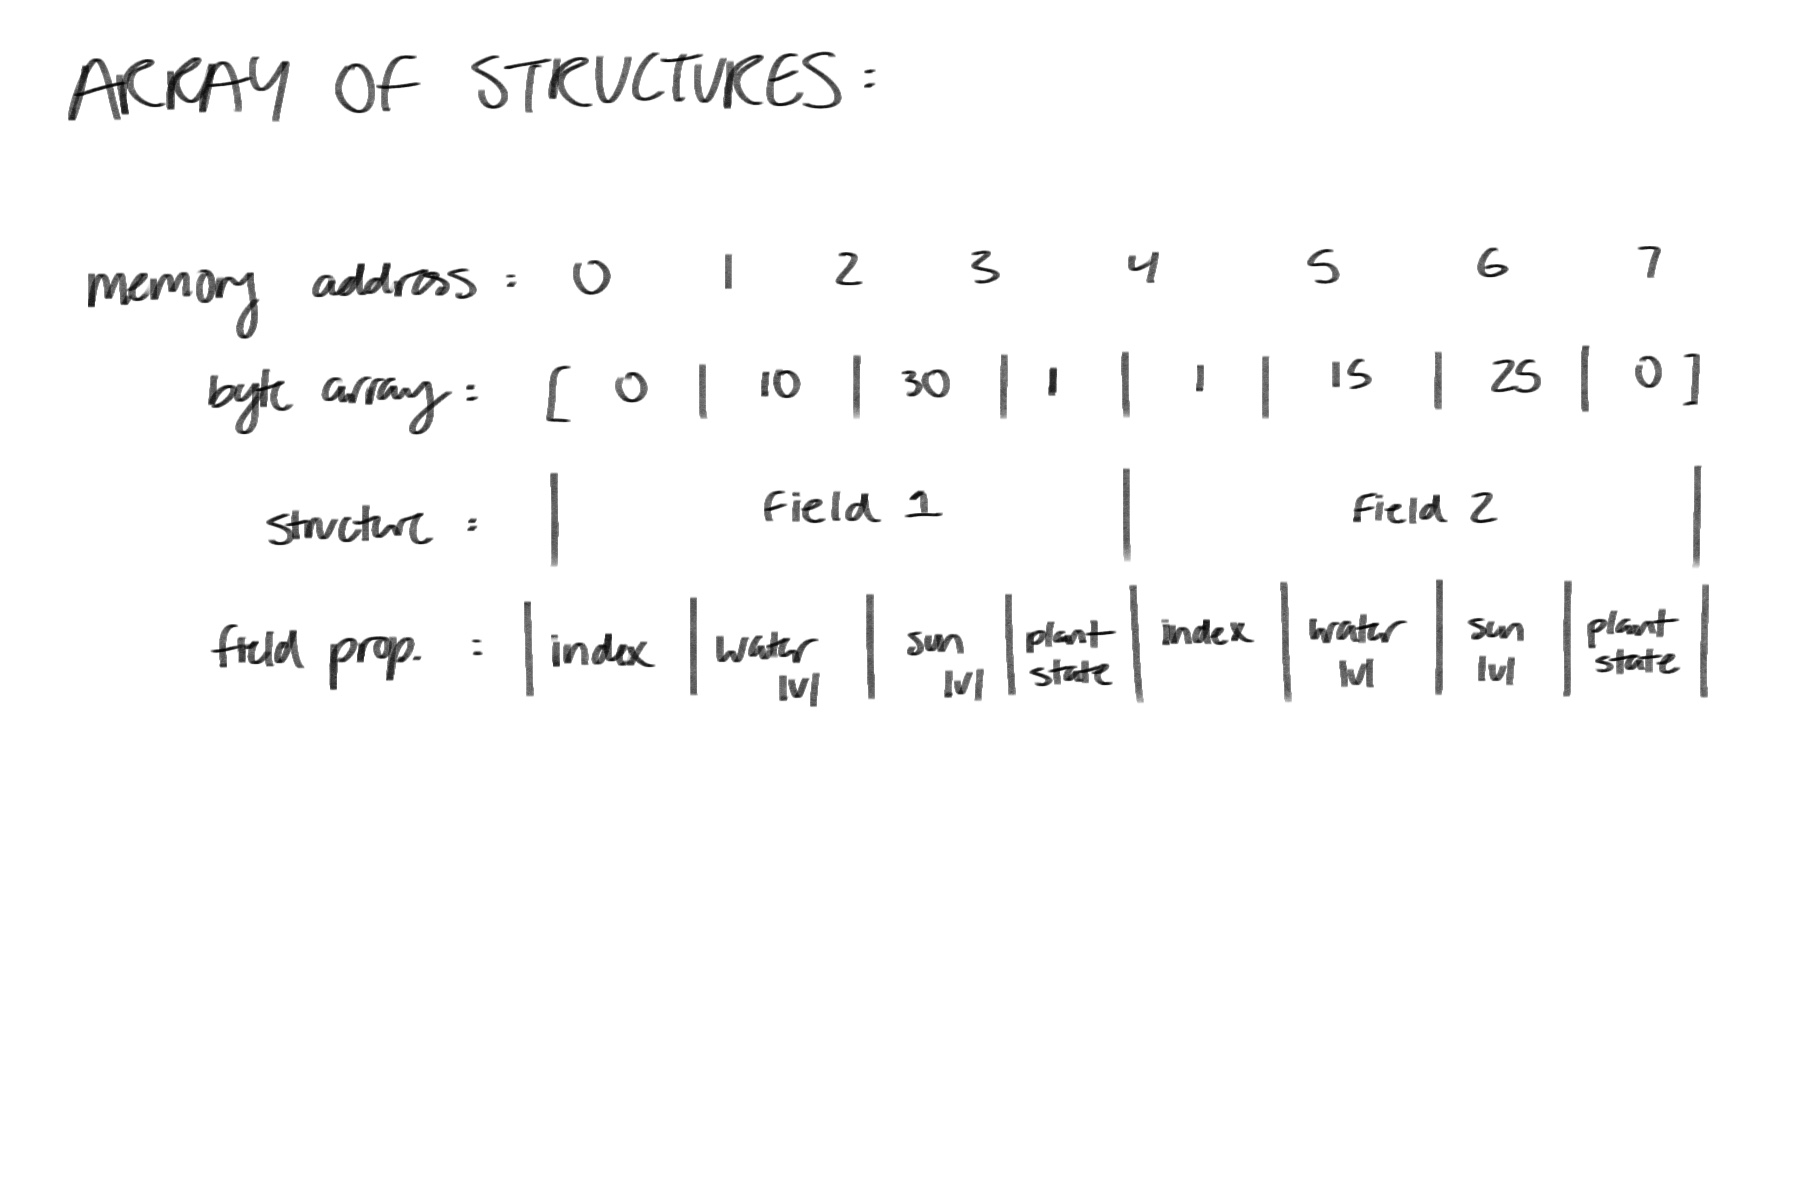 ARRAY OF STRUCTURES:
memory address: 0 1 2 3 4 5 6 7
byte array: [ 0 | 10 | 30 | 1 | 1 | 15 | 25 | 0 ]
structure: | Field 1 | Field 2 |
field prop. : | index | water lvl | sun lvl | plant state | index | water lvl | sun lvl | plant state |